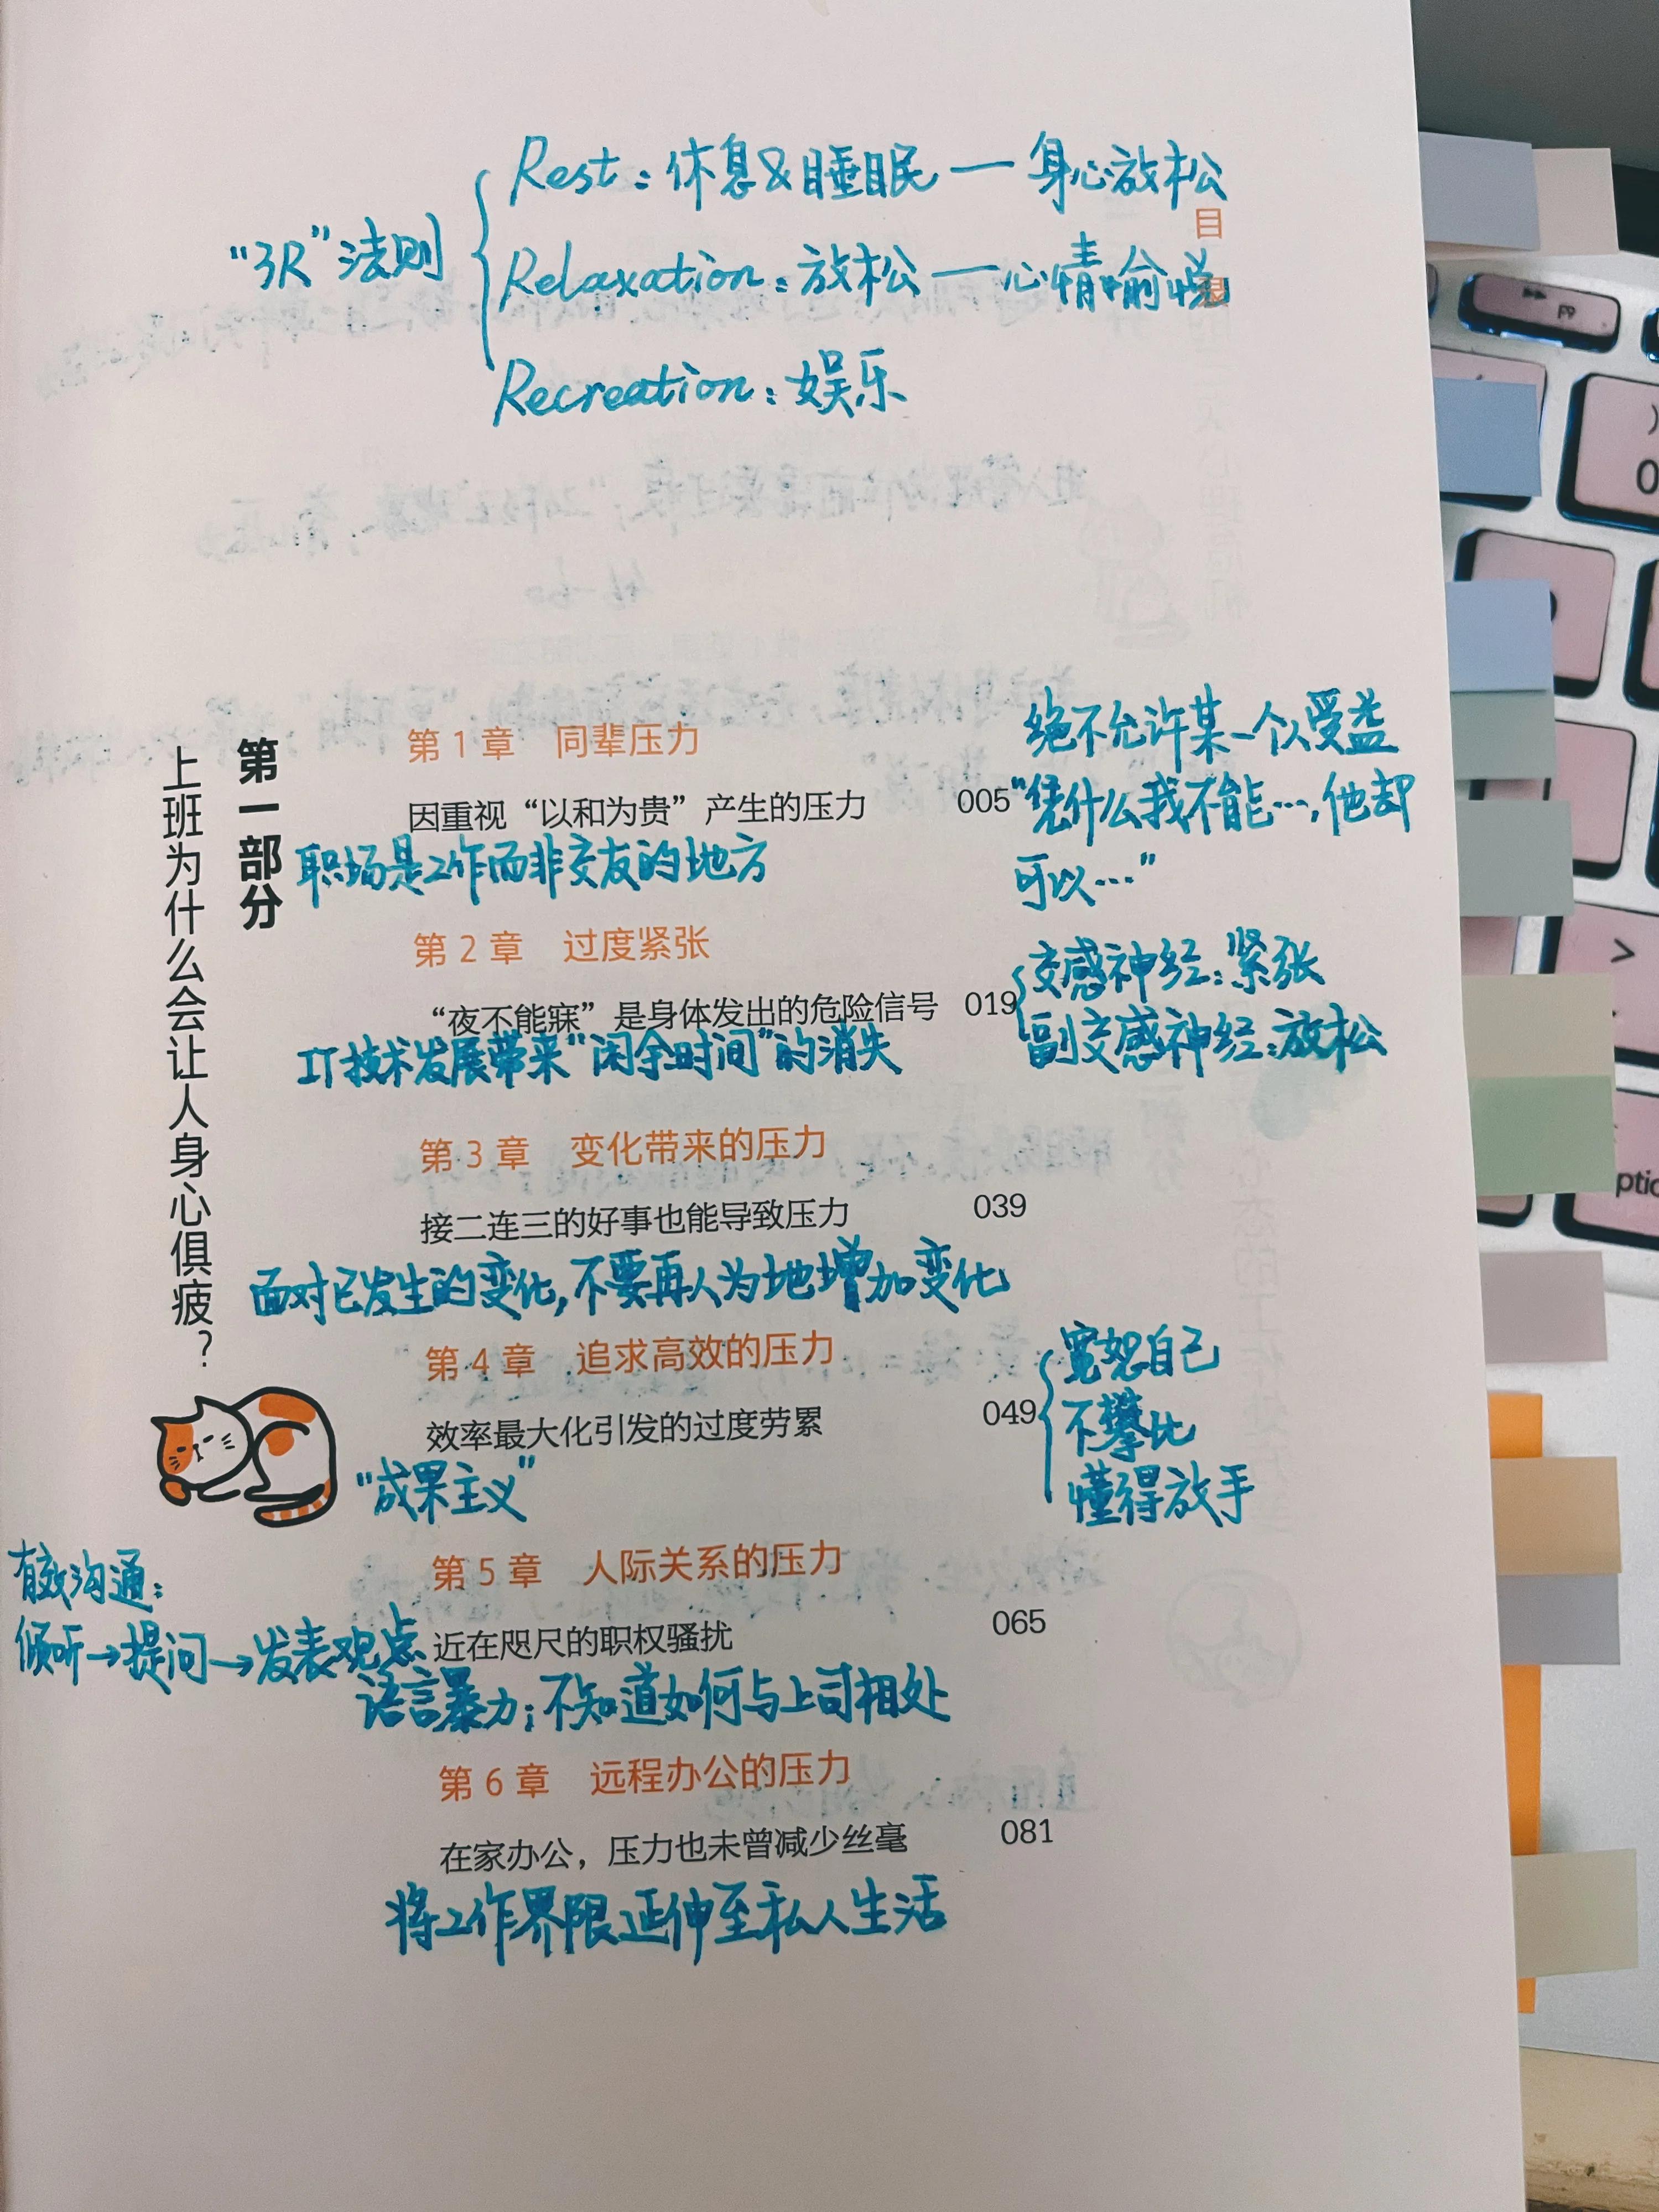 Rest：休息&睡眠 — 身心放松
目
“3R”法则
Relaxation：放松 — 心情愉悦
录
Recreation：娱乐
第一部分
上班为什么会让人身心俱疲？
第 1 章 同辈压力
绝不允许某一个人受益
因重视“以和为贵”产生的压力 005
“凭什么我不能…，他却
可以…”
职场是工作而非交友的地方
第 2 章 过度紧张
交感神经：紧张
“夜不能寐”是身体发出的危险信号 019
副交感神经：放松
IT技术发展带来“闲余时间”的消失
第 3 章 变化带来的压力
接二连三的好事也能导致压力 039
面对已发生的变化，不要再人为地增加变化
第 4 章 追求高效的压力
宽恕自己
效率最大化引发的过度劳累 049
不攀比
懂得放手
“成果主义”
第 5 章 人际关系的压力
有效沟通：
倾听→提问→发表观点
近在咫尺的职权骚扰 065
语言暴力；不知道如何与上司相处
第 6 章 远程办公的压力
在家办公，压力也未曾减少丝毫 081
将工作界限延伸至私人生活
F9
)
0
>